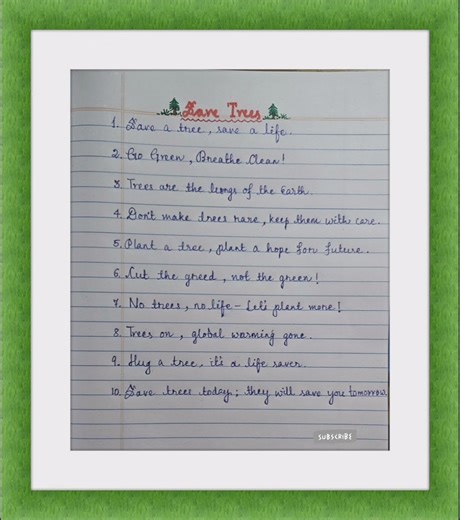 Save Trees
1. Save a tree, save a life.
2. Go Green, Breathe Clean!
3. Trees are the lungs of the Earth.
4. Don't make trees rare, keep them with care.
5. Plant a tree, plant a hope for future.
6. Cut the greed, not the green!
7. No trees, no life - Let's plant more!
8. Trees on, global warming gone.
9. Hug a tree, it's a life saver.
10. Save trees today; they will save you tomorrow
SUBSCRIBE